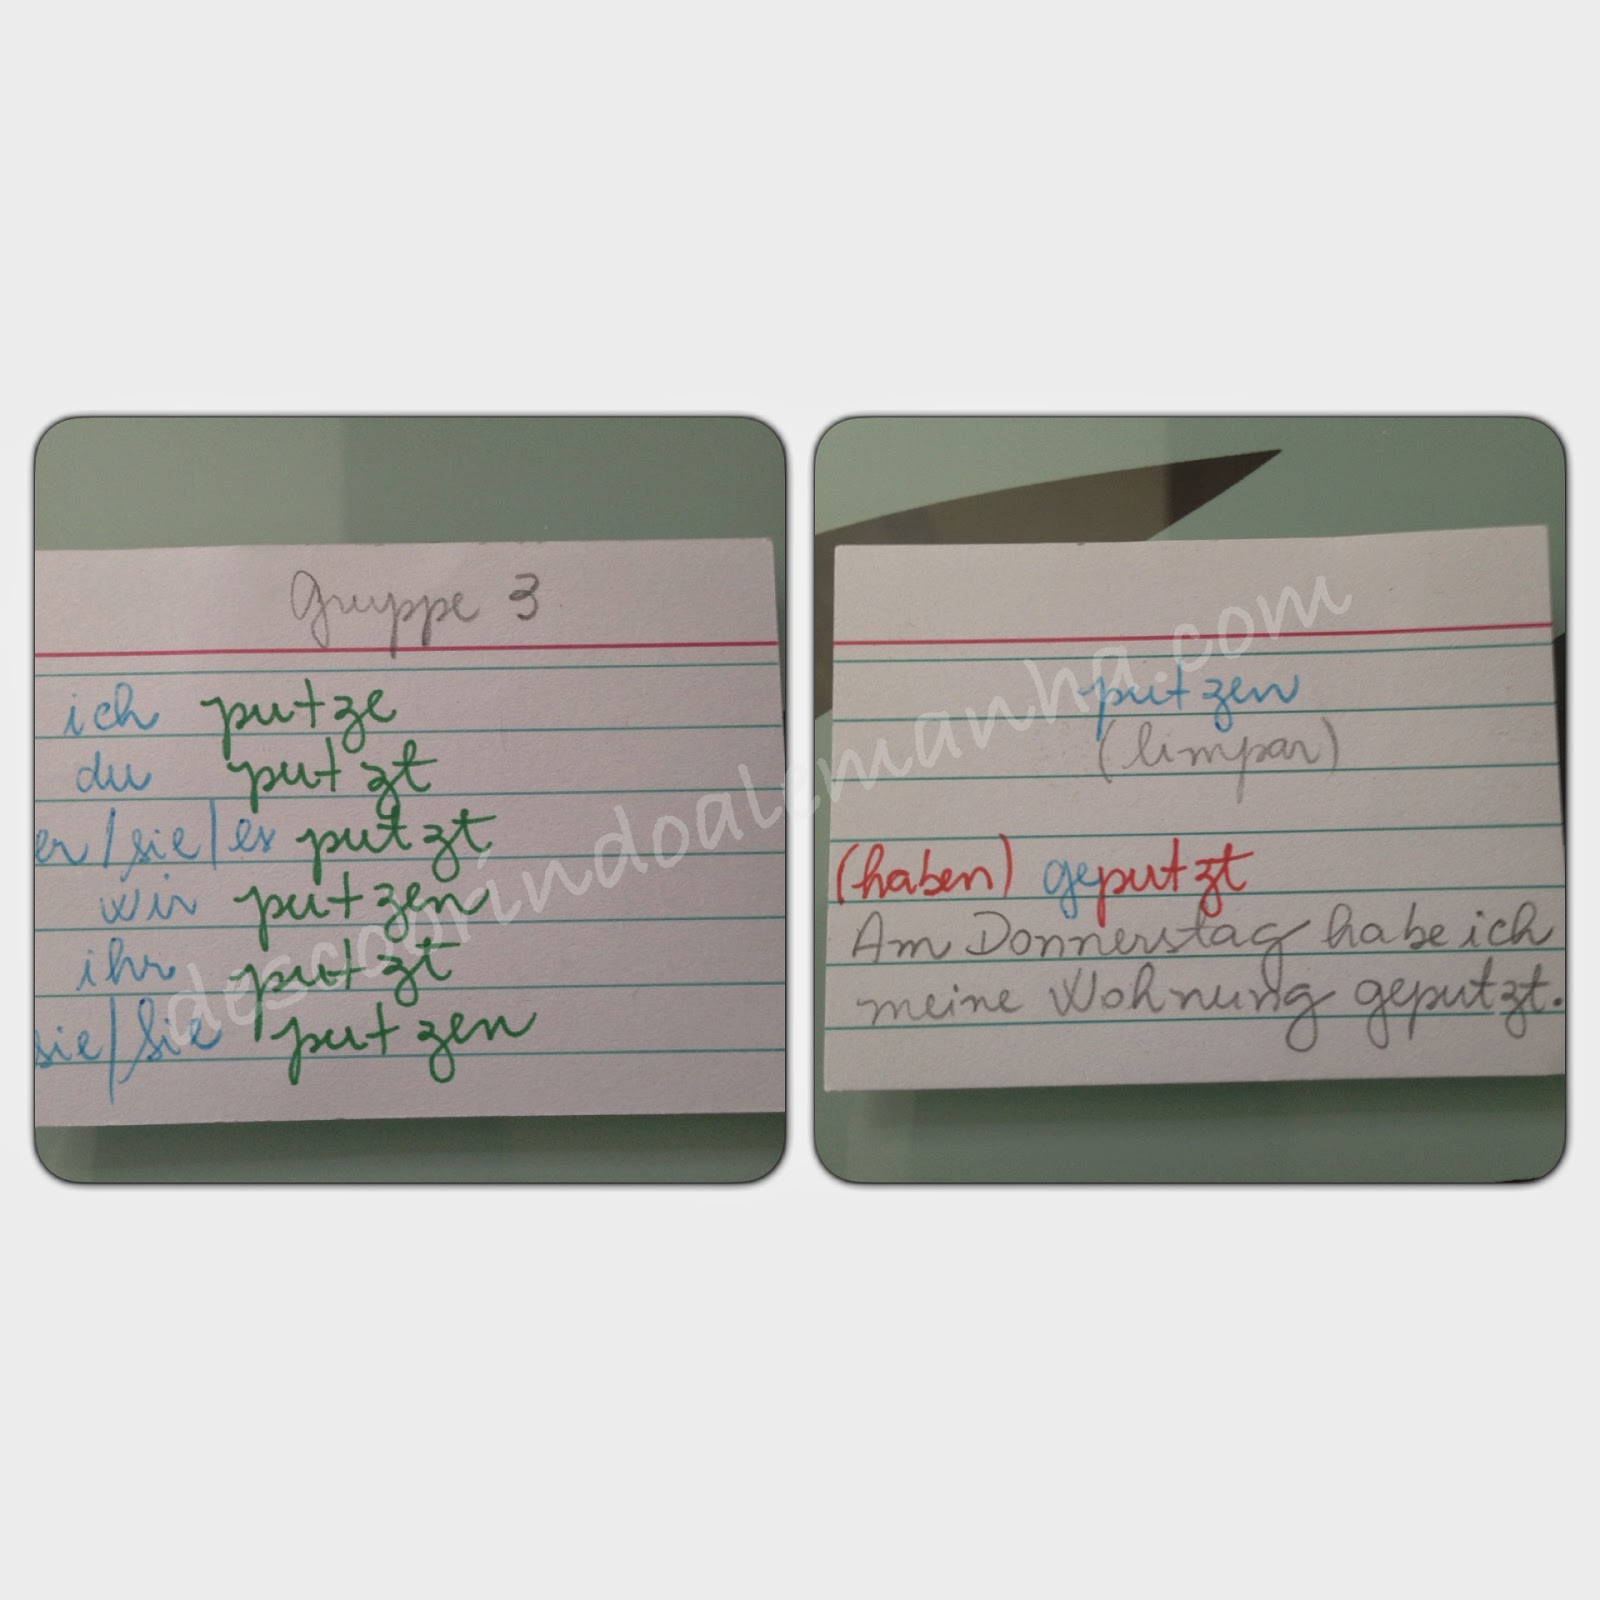 Gruppe 3
ich putze
du putzt
er/sie/es putzt
wir putzen
ihr putzt
sie/Sie putzen
putzen
(limpar)
(haben) geputzt
Am Donnerstag habe ich
meine Wohnung geputzt.
descobrindoalemanha.com